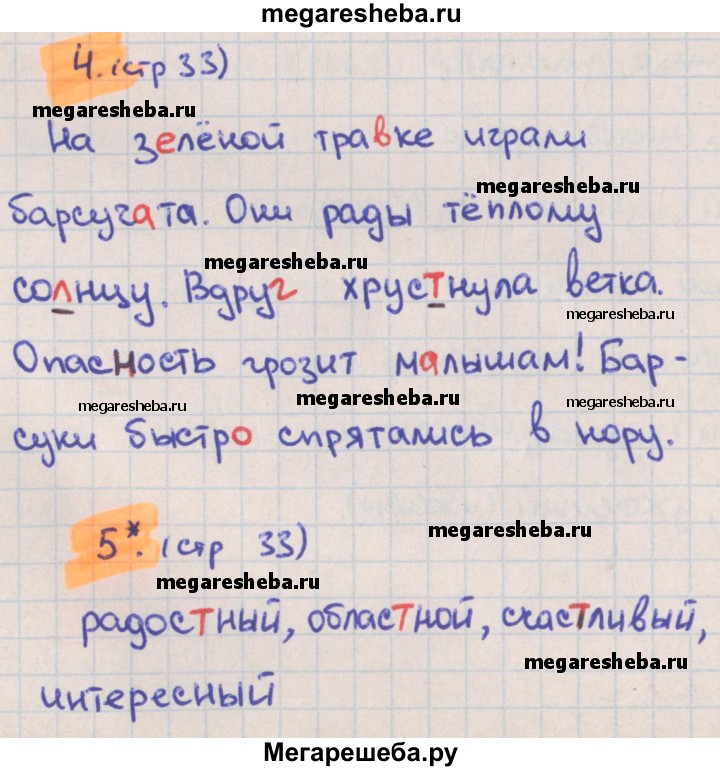 megaresheba.ru
4. (стр 33)
megaresheba.ru
На зелёной травке играли
megaresheba.ru
барсучата. Они рады тёплому
megaresheba.ru
солнцу. Вдруг хрустнула ветка.
megaresheba.ru
Опасность грозит малышам! Бар-
megaresheba.ru megaresheba.ru megaresheba.ru
суки быстро спрятались в нору.
5*. (стр 33)
megaresheba.ru
megaresheba.ru
радостный, областной, счастливый,
megaresheba.ru
интересный
Мегарешеба.ру